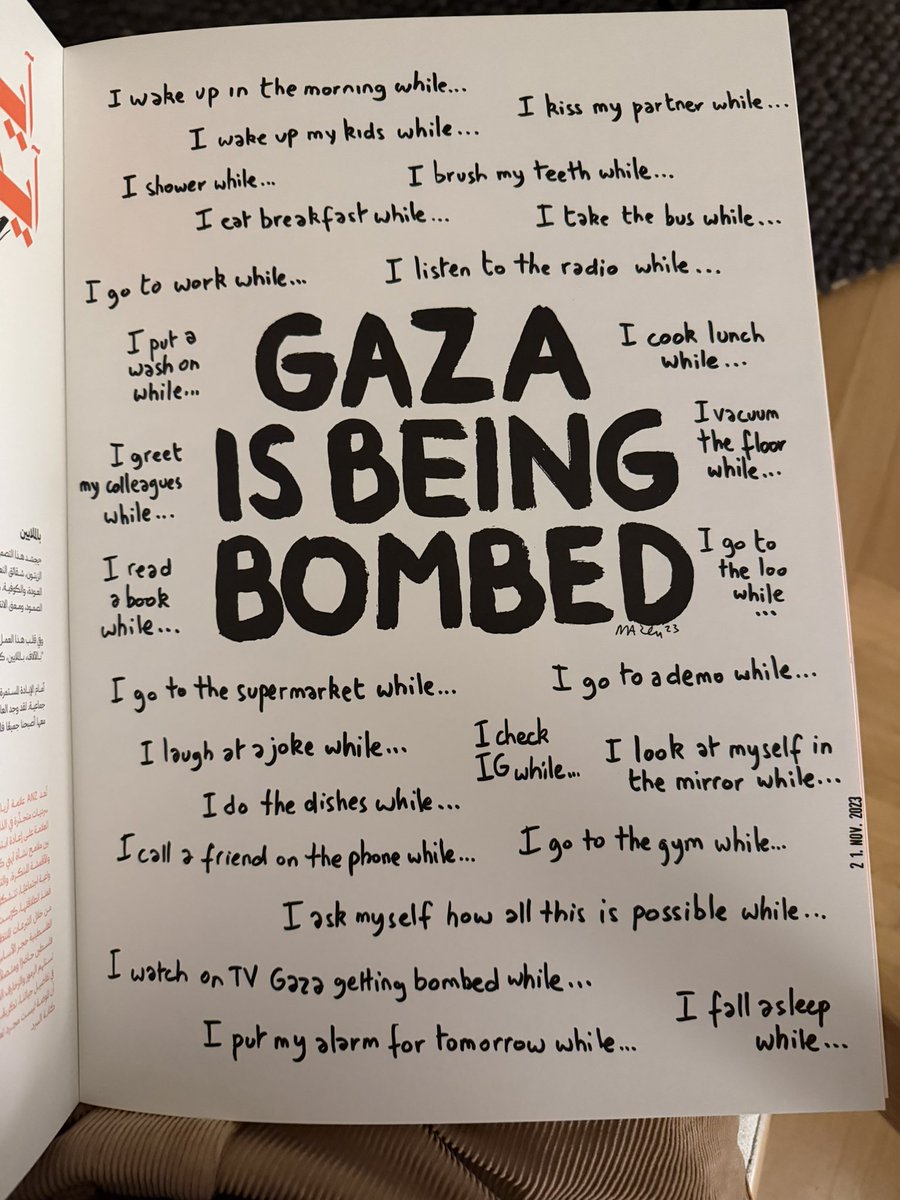 I wake up in the morning while...
I kiss my partner while...
I wake up my kids while...
I shower while...
I brush my teeth while...
I eat breakfast while...
I take the bus while...
I go to work while...
I listen to the radio while...
I put a
wash on
while...
GAZA
IS BEING
BOMBED
MAZen 23
I cook lunch
while...
I greet
my colleagues
while...
I vacuum
the floor
while...
I read
a book
while...
I go to
the loo
while
...
I go to the supermarket while...
I go to a demo while...
I laugh at a joke while...
I check
IG while...
I look at myself in
the mirror while...
I do the dishes while...
I call a friend on the phone while...
I go to the gym while...
I ask myself how all this is possible while...
I watch on TV Gaza getting bombed while...
I fall asleep
while...
I put my alarm for tomorrow while...
21. NOV. 2023
بالملايين
هذا
الزيتون، شقائق
العودة، والكوفية،
الصمود، وعمق
وفي قلب هذا العمل
أمام الإبادة المستمرة
جماعية. لقد وجد
معها أصبحنا جميعًا